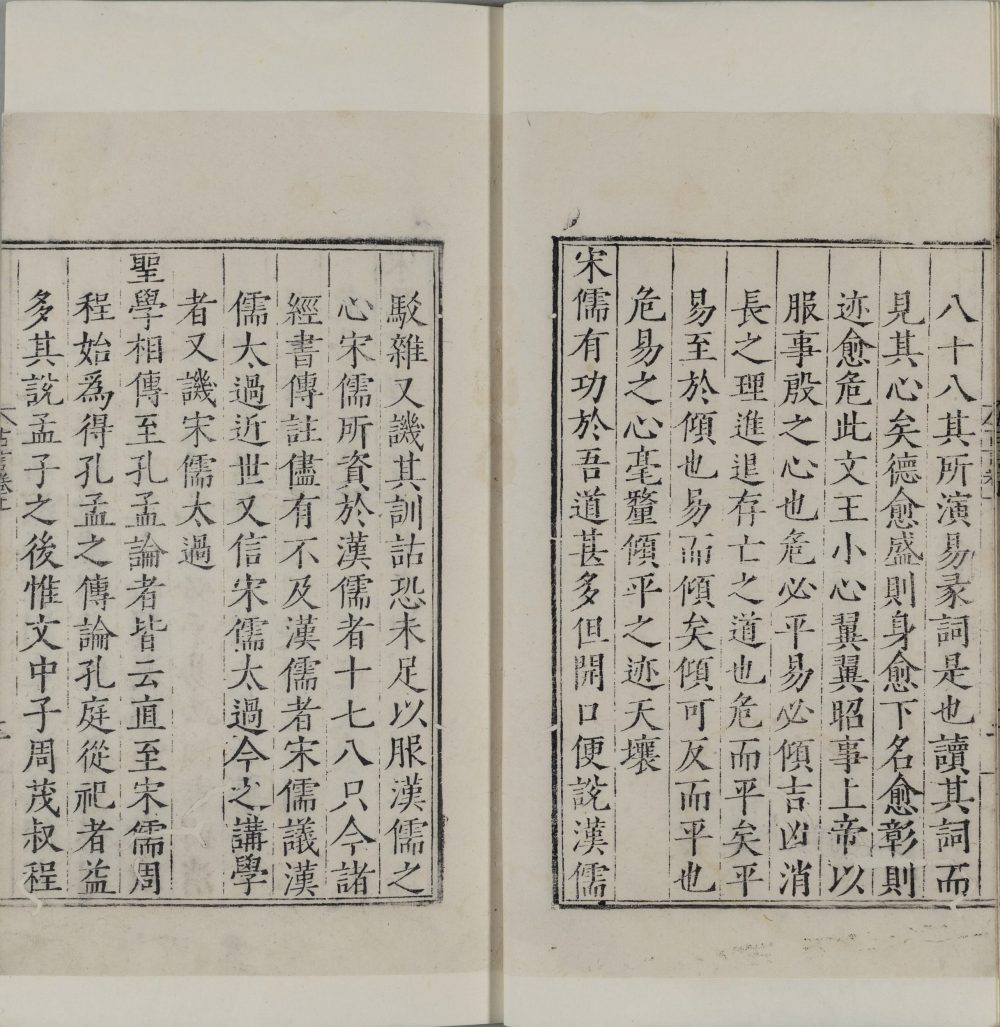 八十八其所演易彖詞是也讀其詞而
見其心矣德愈盛則身愈下名愈彰則
迹愈危此文王小心翼翼昭事上帝以
服事殷之心也危必平易必傾吉凶消
長之理進退存亡之道也危而平矣平
易至於傾也易而傾矣傾可反而平也
危易之心毫釐傾平之迹天壤
宋儒有功於吾道甚多但開口便說漢儒
駁雜又譏其訓詁恐未足以服漢儒之
心宋儒所資於漢儒者十七八只今諸
經書傳註儘有不及漢儒者宋儒議漢
儒太過近世又信宋儒太過今之講學
者又譏宋儒太過
聖學相傳至孔孟論者皆云直至宋儒周
程始爲得孔孟之傳論孔庭從祀者益
多其說孟子之後惟文中子周茂叔程